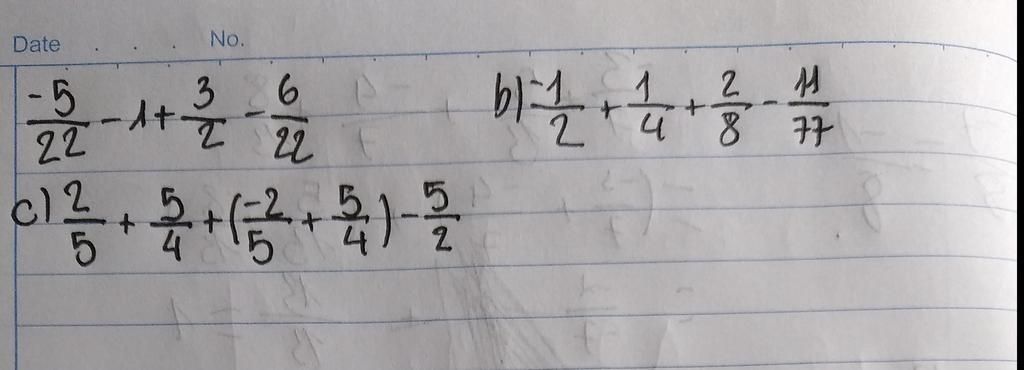 Date . . . No.
-5/22 - 1 + 3/2 - 6/22 b) -1/2 + 1/4 + 2/8 - 11/77
c) 2/5 + 5/4 + (-2/5 + 5/4) - 5/2